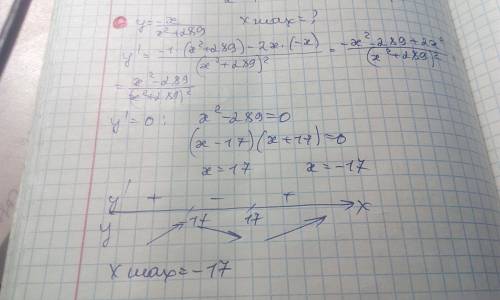 y = -x / (x² + 289)    x max = ?
y' = (-1·(x²+289) - 2x·(-x)) / (x²+289)² = (-x² - 289 + 2x²) / (x²+289)² =
= (x² - 289) / (x²+289)²
y' = 0 :    x² - 289 = 0
(x - 17)(x + 17) = 0
x = 17    x = -17
y'    +    -    +
-17    17    x
y
x max = -17